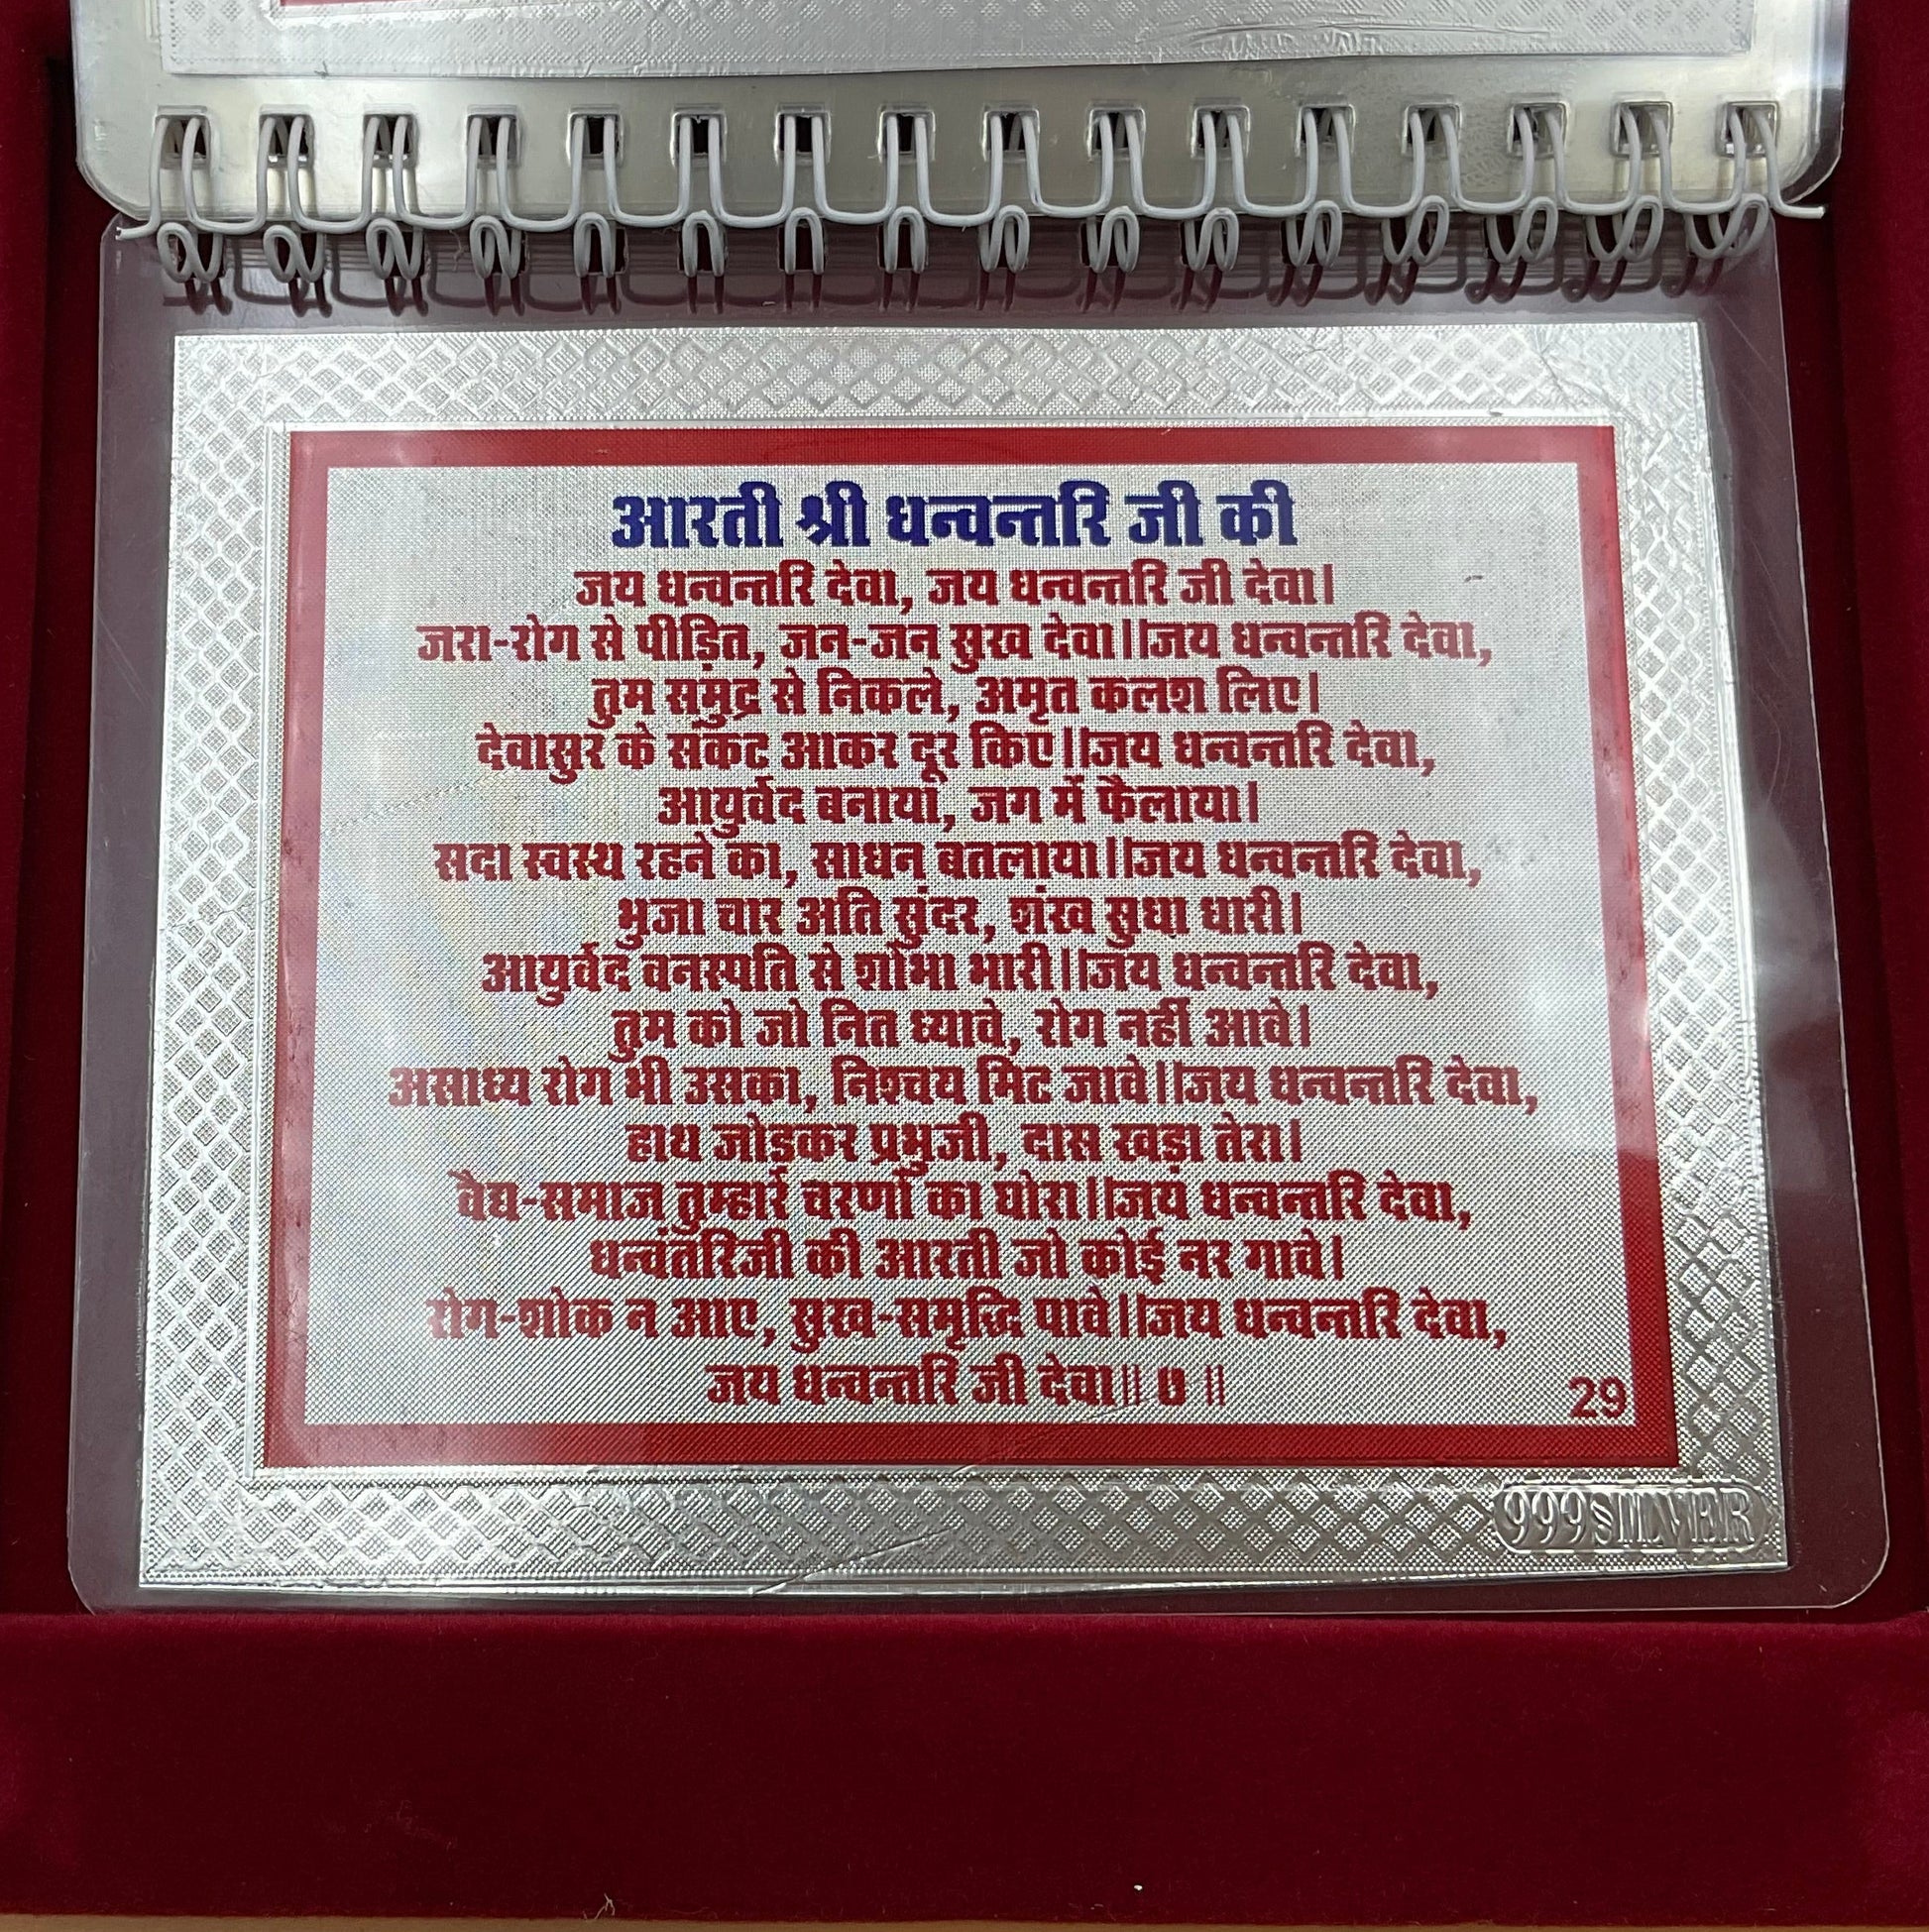 आरती श्री धन्वन्तरि जी की
जय धन्वन्तरि देवा, जय धन्वन्तरि जी देवा।
जरा-रोग से पीड़ित, जन-जन सुख देवा।।जय धन्वन्तरि देवा,
तुम समुद्र से निकले, अमृत कलश लिए।
देवासुर के संकट आकर दूर किए।।जय धन्वन्तरि देवा,
आयुर्वेद बनाया, जग में फैलाया।
सदा स्वस्थ रहने का, साधन बतलाया।।जय धन्वन्तरि देवा,
भुजा चार अति सुंदर, शंख सुधा धारी।
आयुर्वेद वनस्पति से शोभा भारी।।जय धन्वन्तरि देवा,
तुम को जो नित ध्यावे, रोग नहीं आवे।
असाध्य रोग भी उसका, निश्चय मिट जावे।।जय धन्वन्तरि देवा,
हाथ जोड़कर प्रभुजी, दास खड़ा तेरा।
वैद्य-समाज तुम्हारे चरणों का घोरा।।जय धन्वन्तरि देवा,
धन्वंतरिजी की आरती जो कोई नर गावे।
रोग-शोक न आए, सुख-समृद्धि पावे।।जय धन्वन्तरि देवा,
जय धन्वन्तरि जी देवा॥ ७ ॥
29
999 SILVER